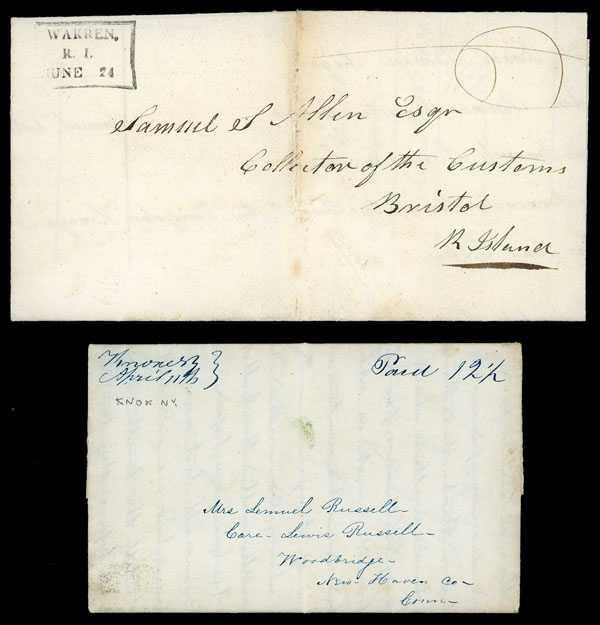 WARREN,
R. I.
JUNE 24
Samuel S Allen Esqr
Collector of the Customs
Bristol
R Island
April 11th
Paid 12½
KNOX NY
Mrs Lemuel Russell
Care - Lewis Russell -
Woodbridge -
New-Haven Co -
Conn -